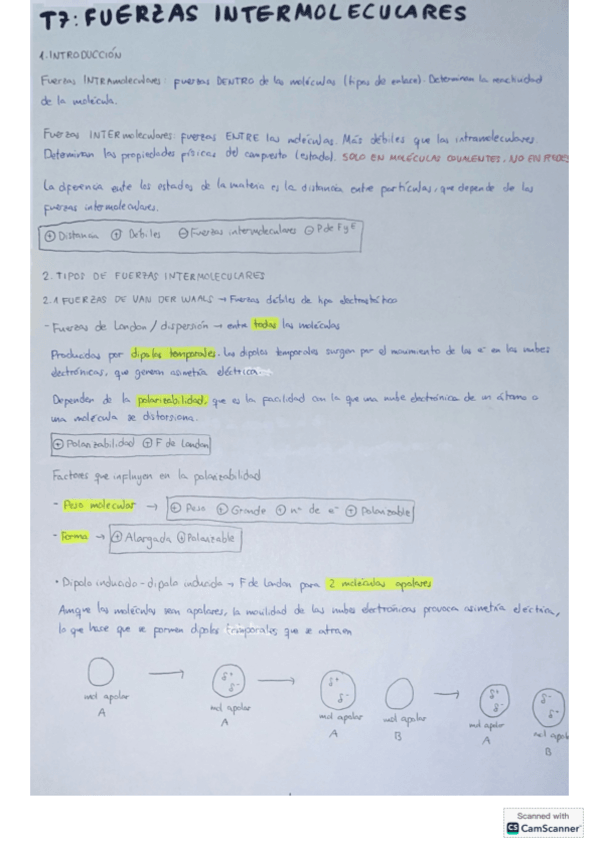 T7: FUERZAS INTERMOLECULARES
1. INTRODUCCIÓN
Fuerzas INTRAmoleculares: fuerzas DENTRO de las moléculas (tipos de enlace). Determinan la reactividad
de la molécula.
Fuerzas INTERmoleculares: fuerzas ENTRE las moléculas. Más débiles que las intramoleculares.
Determinan las propiedades físicas del compuesto (estado). SOLO EN MOLÉCULAS COVALENTES, NO EN REDES
La diferencia entre los estados de la materia es la distancia entre partículas, que depende de las
fuerzas intermoleculares.
⊕ Distancia ⊕ Débiles ⊖ Fuerzas intermoleculares ⊖ P de F y E
2. TIPOS DE FUERZAS INTERMOLECULARES
2.1 FUERZAS DE VAN DER WAALS → Fuerzas débiles de tipo electrostático
- Fuerzas de London / dispersión → entre todas las moléculas
Producidas por dipolos temporales. Los dipolos temporales surgen por el movimiento de los e⁻ en las nubes
electrónicas, que generan asimetría eléctrica.
Dependen de la polarizabilidad, que es la facilidad con la que una nube electrónica de un átomo o
una molécula se distorsiona.
⊕ Polarizabilidad ⊕ F de London
Factores que influyen en la polarizabilidad
- Peso molecular → ⊕ Peso ⊕ Grande ⊕ nº de e⁻ ⊕ Polarizable
- Forma → ⊕ Alargada ⊕ Polarizable
• Dipolo inducido - dipolo inducido → F de London para 2 moléculas apolares
Aunque las moléculas sean apolares, la movilidad de las nubes electrónicas provoca asimetría eléctrica,
lo que hace que se formen dipolos temporales que se atraen
δ⁺ δ⁻ δ⁺ δ⁻ δ⁺ δ⁻ δ⁻ δ⁺
mol apolar mol apolar mol apolar mol apolar mol apolar mol apol
A A A B A B
Scanned with
CS CamScanner